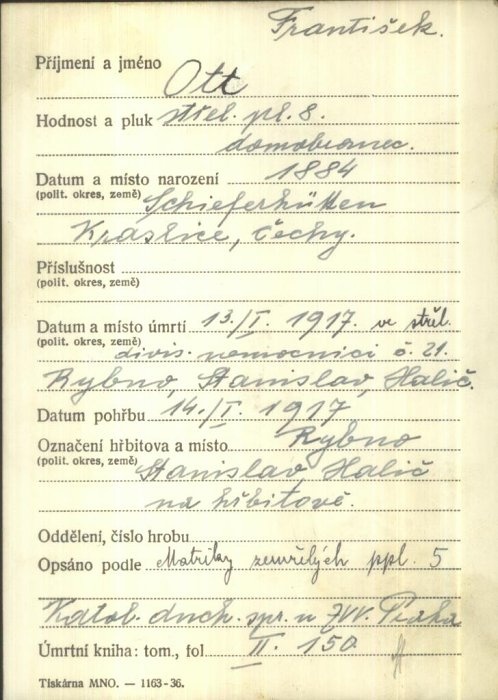 František.
Příjmení a jméno Ott
Hodnost a pluk střel. pl. 8.
domobranec.
Datum a místo narození 1884
(polit. okres, země) Schieferhütten
Kraslice, Čechy.
Příslušnost
(polit. okres, země)
Datum a místo úmrtí 13./I. 1917. ve střel.
(polit. okres, země) divis. nemocnici č. 21.
Rybno, Stanislav, Halič.
Datum pohřbu 14./I. 1917
Označení hřbitova a místo Rybno
(polit. okres, země) Stanislav, Halič
na hřbitově.
Oddělení, číslo hrobu
Opsáno podle Matriky zemřelých ppl. 5
Katol. duch. spr. u ZVV. Praha
Úmrtní kniha: tom., fol. II. 150.
Tiskárna MNO. — 1163-36.